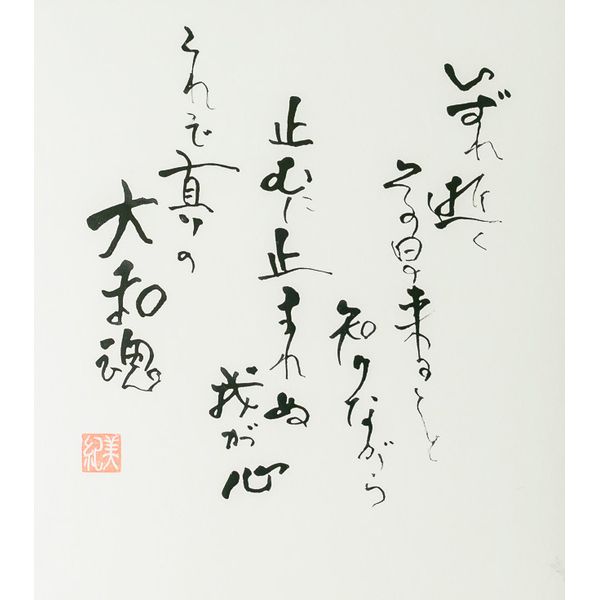 いずれ逝く
その日の来ること
知りながら
止むに止まれぬ
我が心
これぞ真の
大和魂
美紀